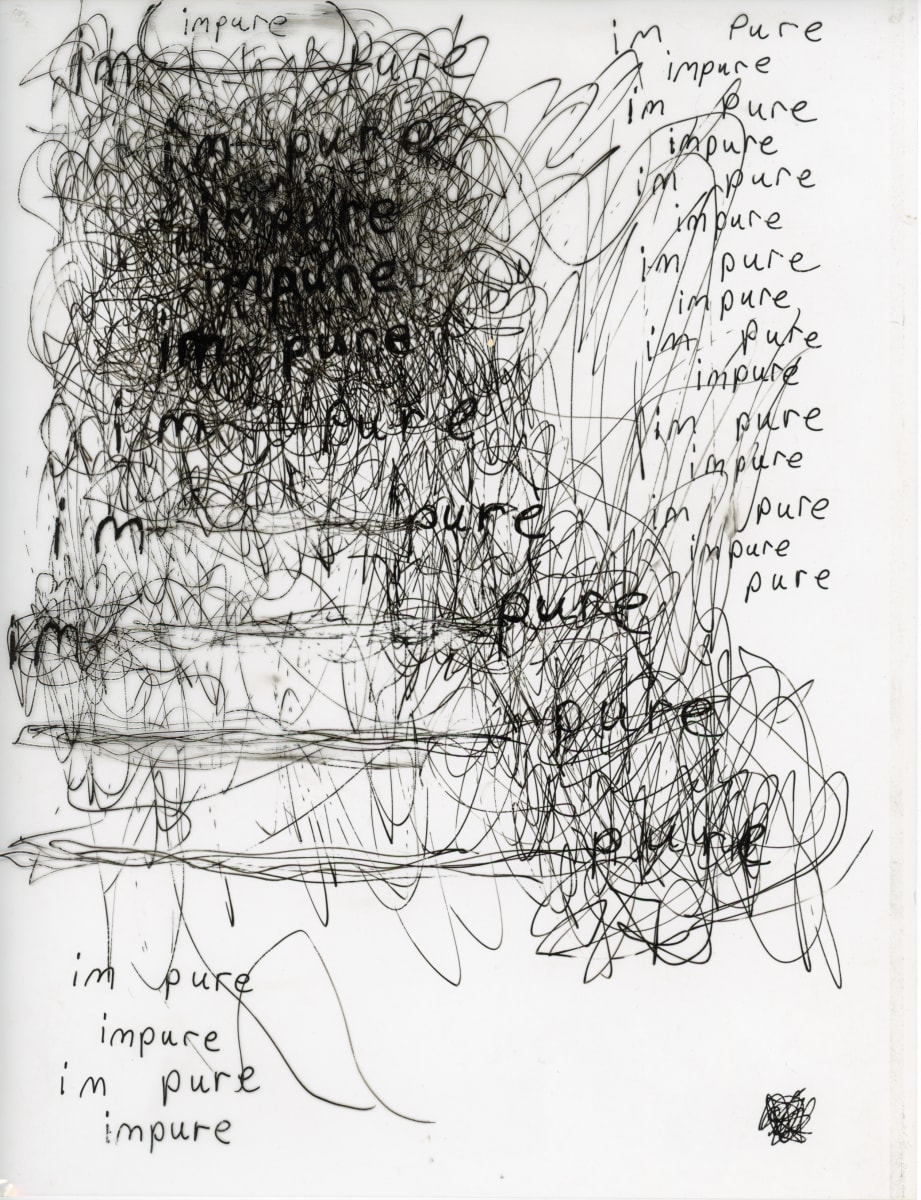 (impure)
im pure
im pure
impure
impure
im pure
im pure
im pure
im pure
pure
pure
im Pure
impure
im pure
impure
im pure
impure
im pure
impure
im pure
impure
im pure
impure
im pure
impure
pure
im pure
impure
im pure
impure